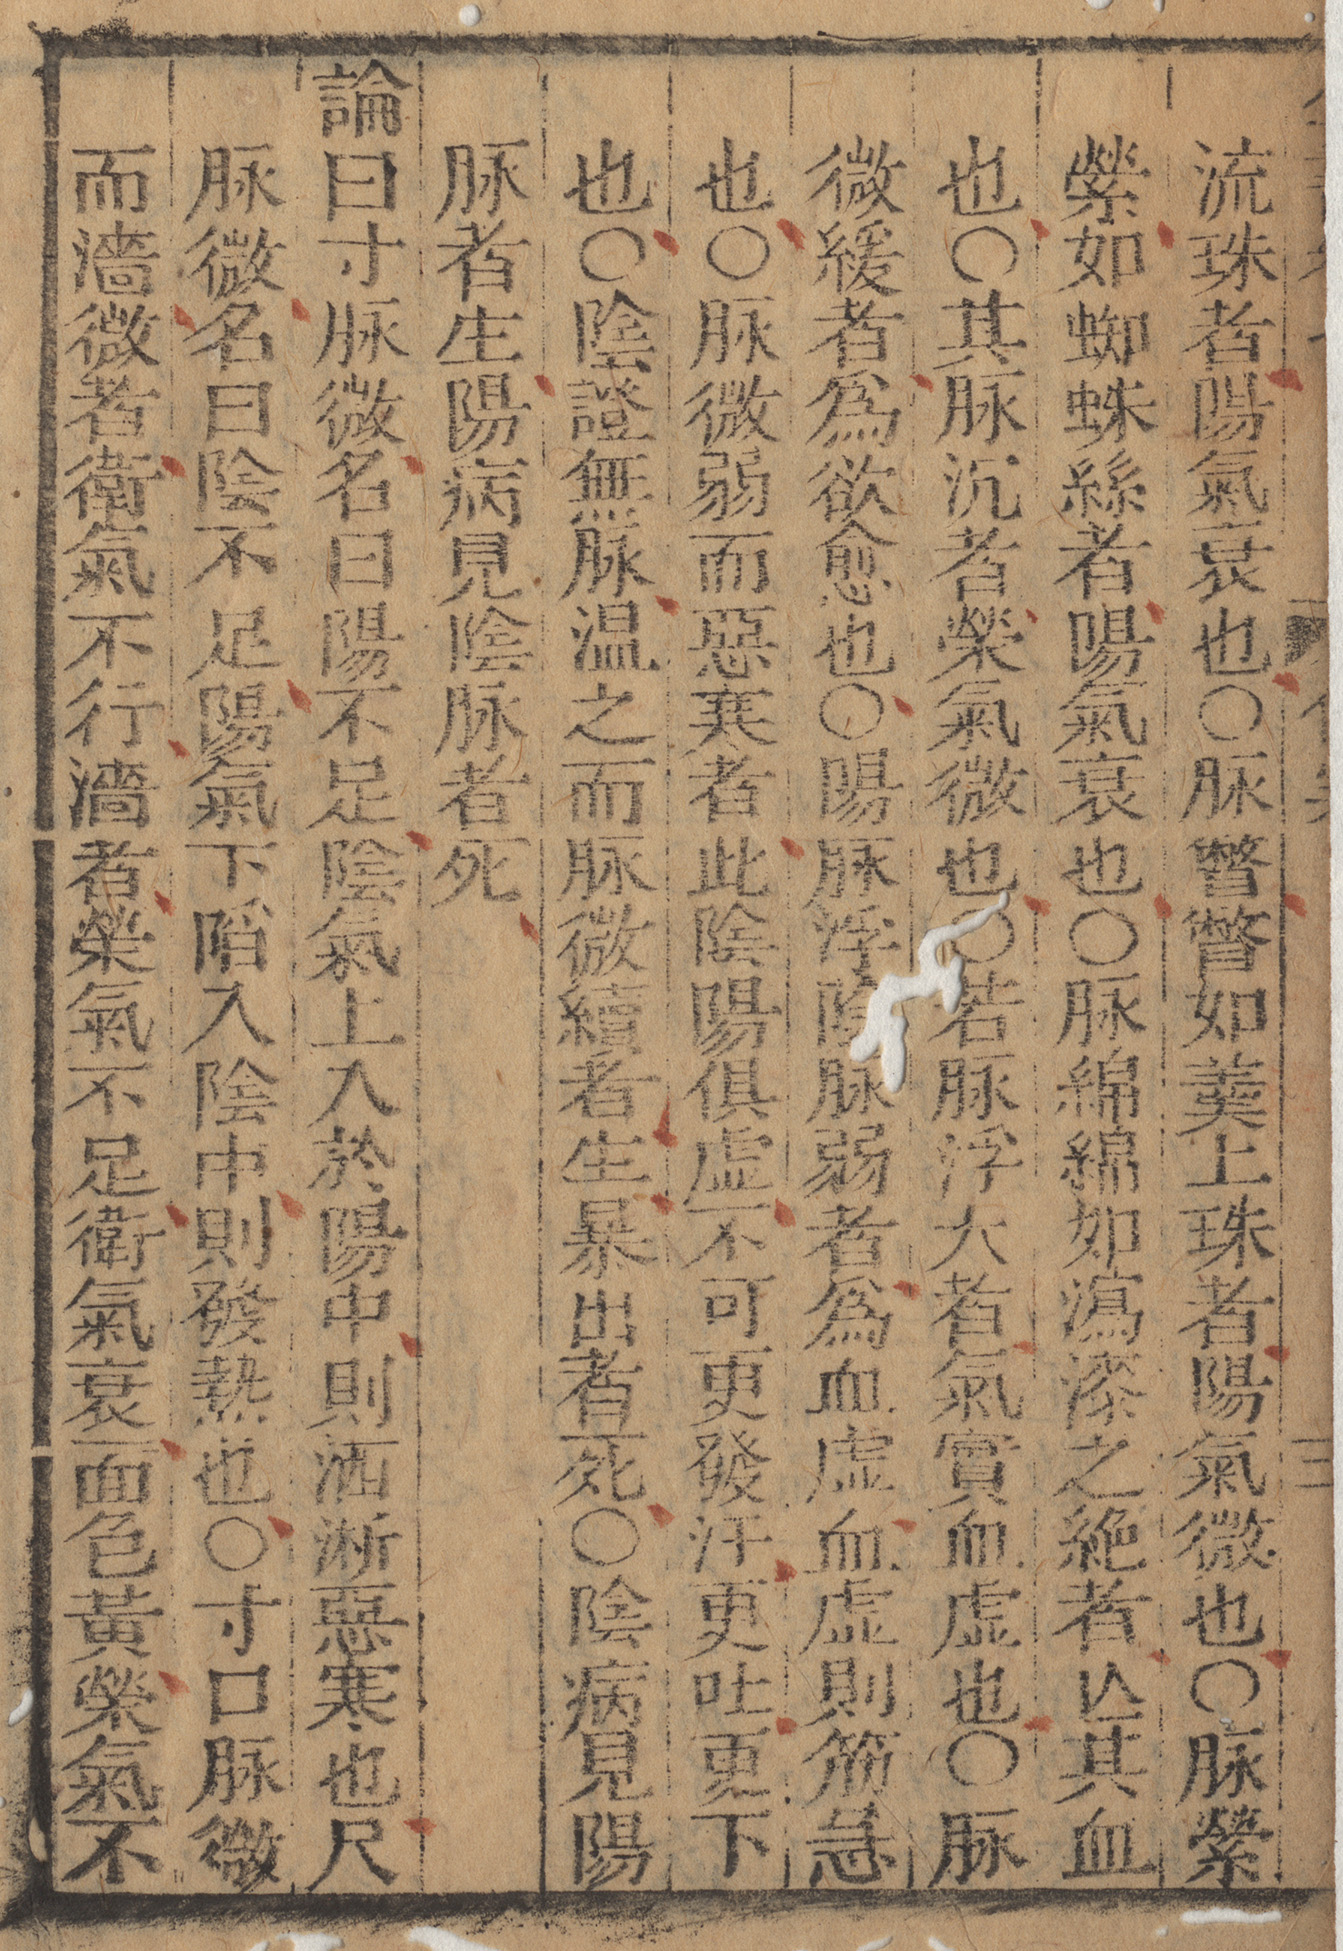 流珠者陽氣衰也〇脉瞥瞥如羹上珠者陽氣微也〇脉縈
縈如蜘蛛絲者陽氣衰也〇脉綿綿如瀉漆之絶者亾其血
也〇其脉沉者榮氣微也〇若脉浮大者氣實血虛也〇脉
微緩者爲欲愈也〇陽脉浮陰脉弱者爲血虛血虛則筋急
也〇脉微弱而惡寒者此陰陽俱虛不可更發汗更吐更下
也〇陰證無脉温之而脉微續者生暴出者死〇陰病見陽
脉者生陽病見陰脉者死
論曰寸脉微名曰陽不足陰氣上入於陽中則洒淅惡寒也尺
脉微名曰陰不足陽氣下陷入陰中則發熱也〇寸口脉微
而濇微者衛氣不行濇者榮氣不足衛氣衰面色黃榮氣不
三